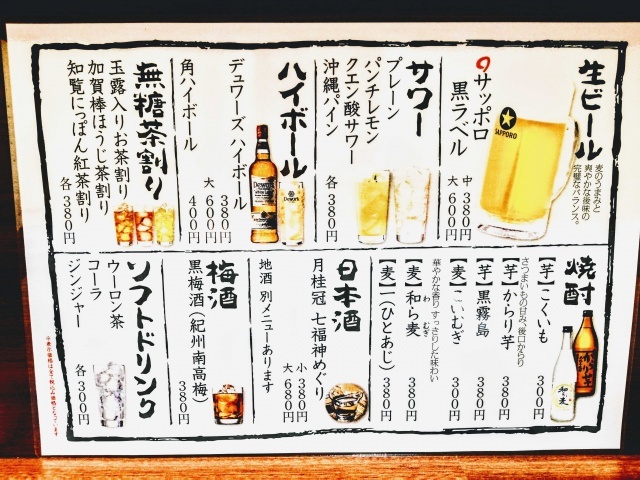 生ビール
麦のうまみと
爽やかな後味の
完璧なバランス。
SAPPORO
サッポロ
黒ラベル
中 380円
大 680円
サワー
プレーン
パンチレモン
クエン酸サワー
沖縄パイン
各 380円
ハイボール
Dewar's
デュワーズハイボール
380円
大 600円
角ハイボール
400円
無糖茶割り
玉露入りお茶割り
加賀棒ほうじ茶割り
知覧にっぽん紅茶割り
各 380円
焼酎
【芋】こくいも 300円
さつまいもの甘み、後口からり
【芋】からり芋 380円
【芋】黒霧島 380円
【麦】こいむぎ 300円
華やかな香り すっきりした味わい
【麦】和ら麦 380円
わ むぎ
【麦】一（ひとあじ） 380円
日本酒
月桂冠 七福神めぐり
小 380円
大 680円
地酒 別メニューあります
梅酒
黒梅酒（紀州南高梅）
380円
ソフトドリンク
ウーロン茶
コーラ
ジンジャー
各 300円
※表示価格は全て税込み価格となっています